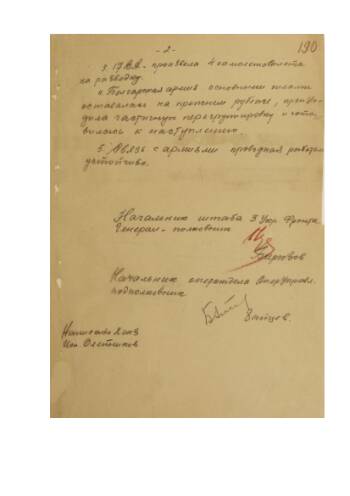 - 2 - 190
3. 17 ВА - произвела 4 самолетовылета
на разведку.
4. Болгарская армия основными силами
оставалась на прежнем рубеже, произво-
дила частичную перегруппировку и гото-
вилась к наступлению.
5. Связь с армиями проводная работала
устойчиво.
Начальник штаба 3 Укр. Фронта
Генерал-полковник
Бирюзов
Начальник оперотдела Оперуправл.
подполковник
Зайцев.
Написано 2 экз
Исп.